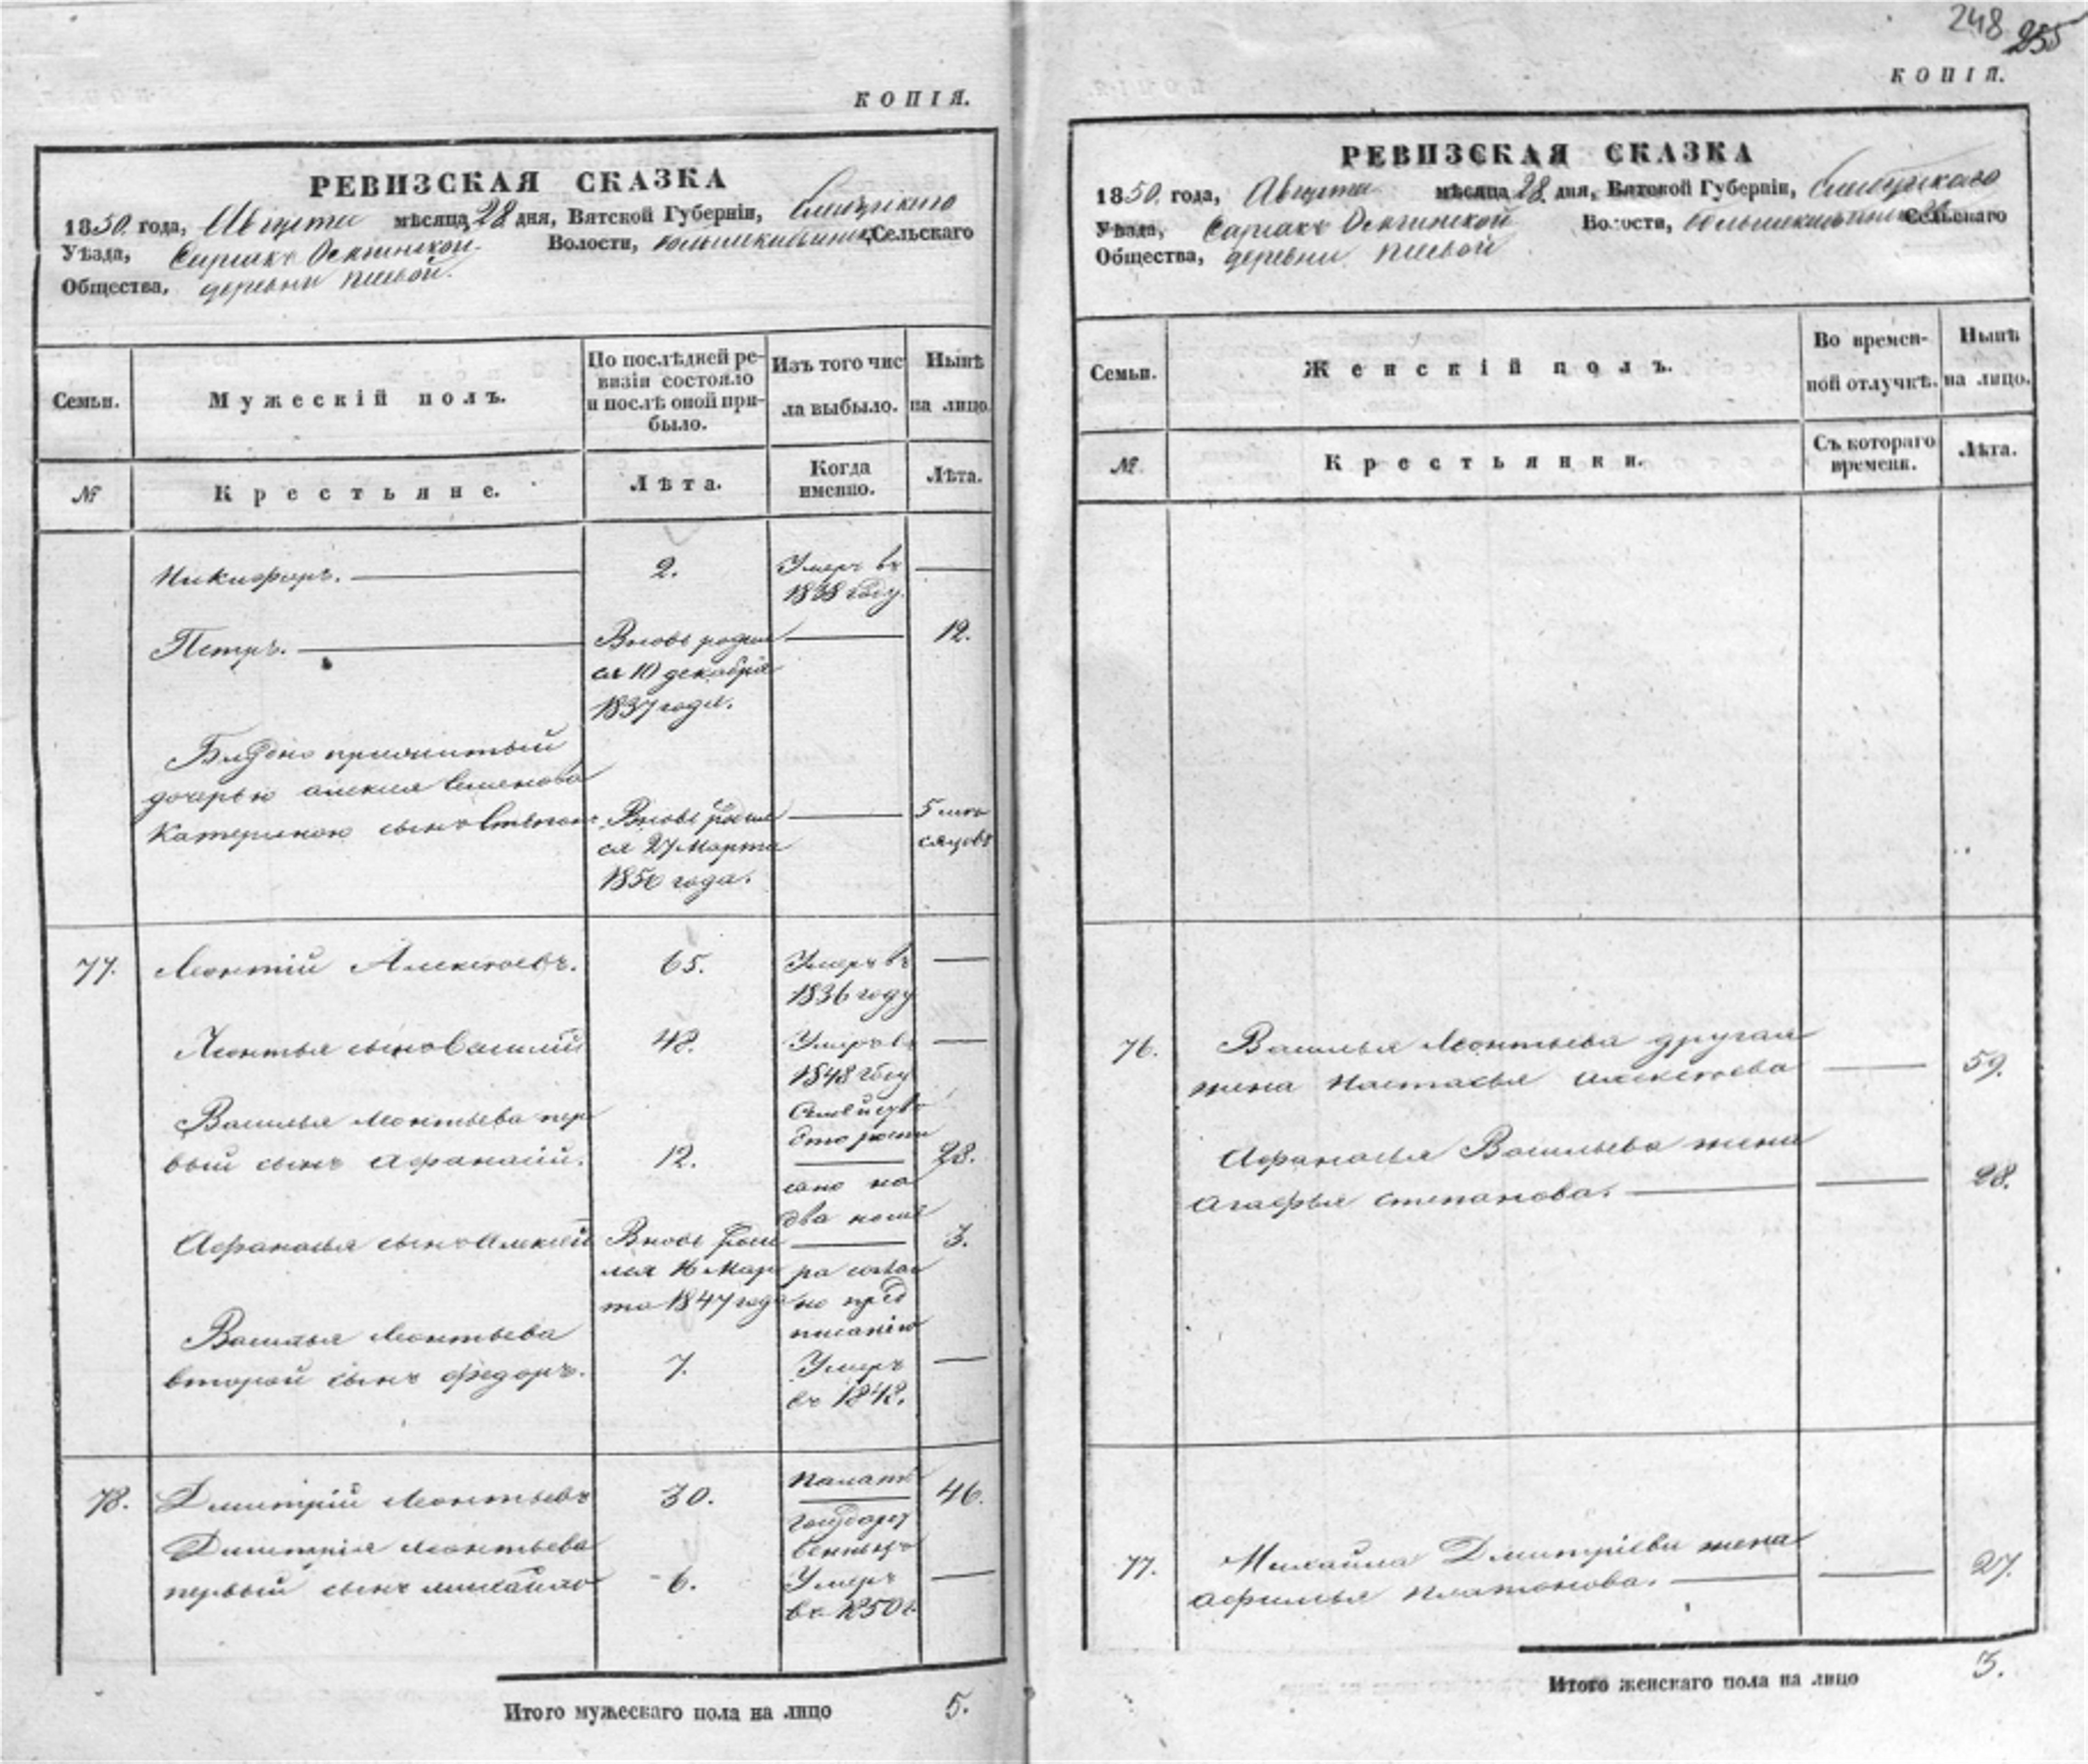 КОПІЯ.
РЕВИЗСКАЯ СКАЗКА
1850. года, Августа мѣсяца, 28 дня, Вятской Губерніи,
Уѣзда, Волости, Сельскаго
Общества, деревни
Семьи.
Мужескій полъ.
По послѣдней ре-
визіи состояло
и послѣ оной при-
было.
Изъ того чис
ла выбыло.
Нынѣ
на лицо.
№
Крестьяне.
Лѣта.
Когда
именно.
Лѣта.
Никифоръ. 2. Умеръ въ
1838 году.
Петръ. Вновь родил 12.
ся 10 декабря
1837 года.
Блудно прижитый
дочерью Семенова
Катериною сынъ Степанъ Вновь родил 5 мѣ
ся 27 Марта сяцовъ
1850 года.
77. Леонтій Алексѣевъ. 65. Умеръ въ
1836 году
Леонтья сынъ Василій 48. Умеръ въ
1848 году
Василья Леонтьева пер Семейство
это роспи
вый сынъ Афанасій. 12. 28.
сано на
два номе
Афанасья сынъ Алексѣй Вновь роди 3.
лся 16 Мар ра соглас
та 1847 года но пред
писанію
Василья Леонтьева
второй сынъ Федоръ. 7. Умеръ
въ 1842.
78. Дмитрій Леонтьевъ 30. Палаты 46.
Государст
венныхъ
Дмитрія Леонтьева
первый сынъ Михайло 6. Умеръ
въ 1850 г.
Итого мужескаго пола на лицо 5.
248 255
КОПІЯ.
РЕВИЗСКАЯ СКАЗКА
1850. года, Августа мѣсяца 28 дня, Вятской Губерніи,
Уѣзда, Волости, Сельскаго
Общества, деревни
Семьи.
Женскій полъ.
Во времен-
ной отлучкѣ.
Нынѣ
на лицо.
№
Крестьянки.
Съ котораго
времени.
Лѣта.
76. Василья Леонтьева другая
жена Настасья Алексѣева 59.
Афанасья Васильева жена
Агафья Степанова. 28.
77. Михайла Дмитріева жена
Афимья Платонова. 27.
Итого женскаго пола на лицо 3.